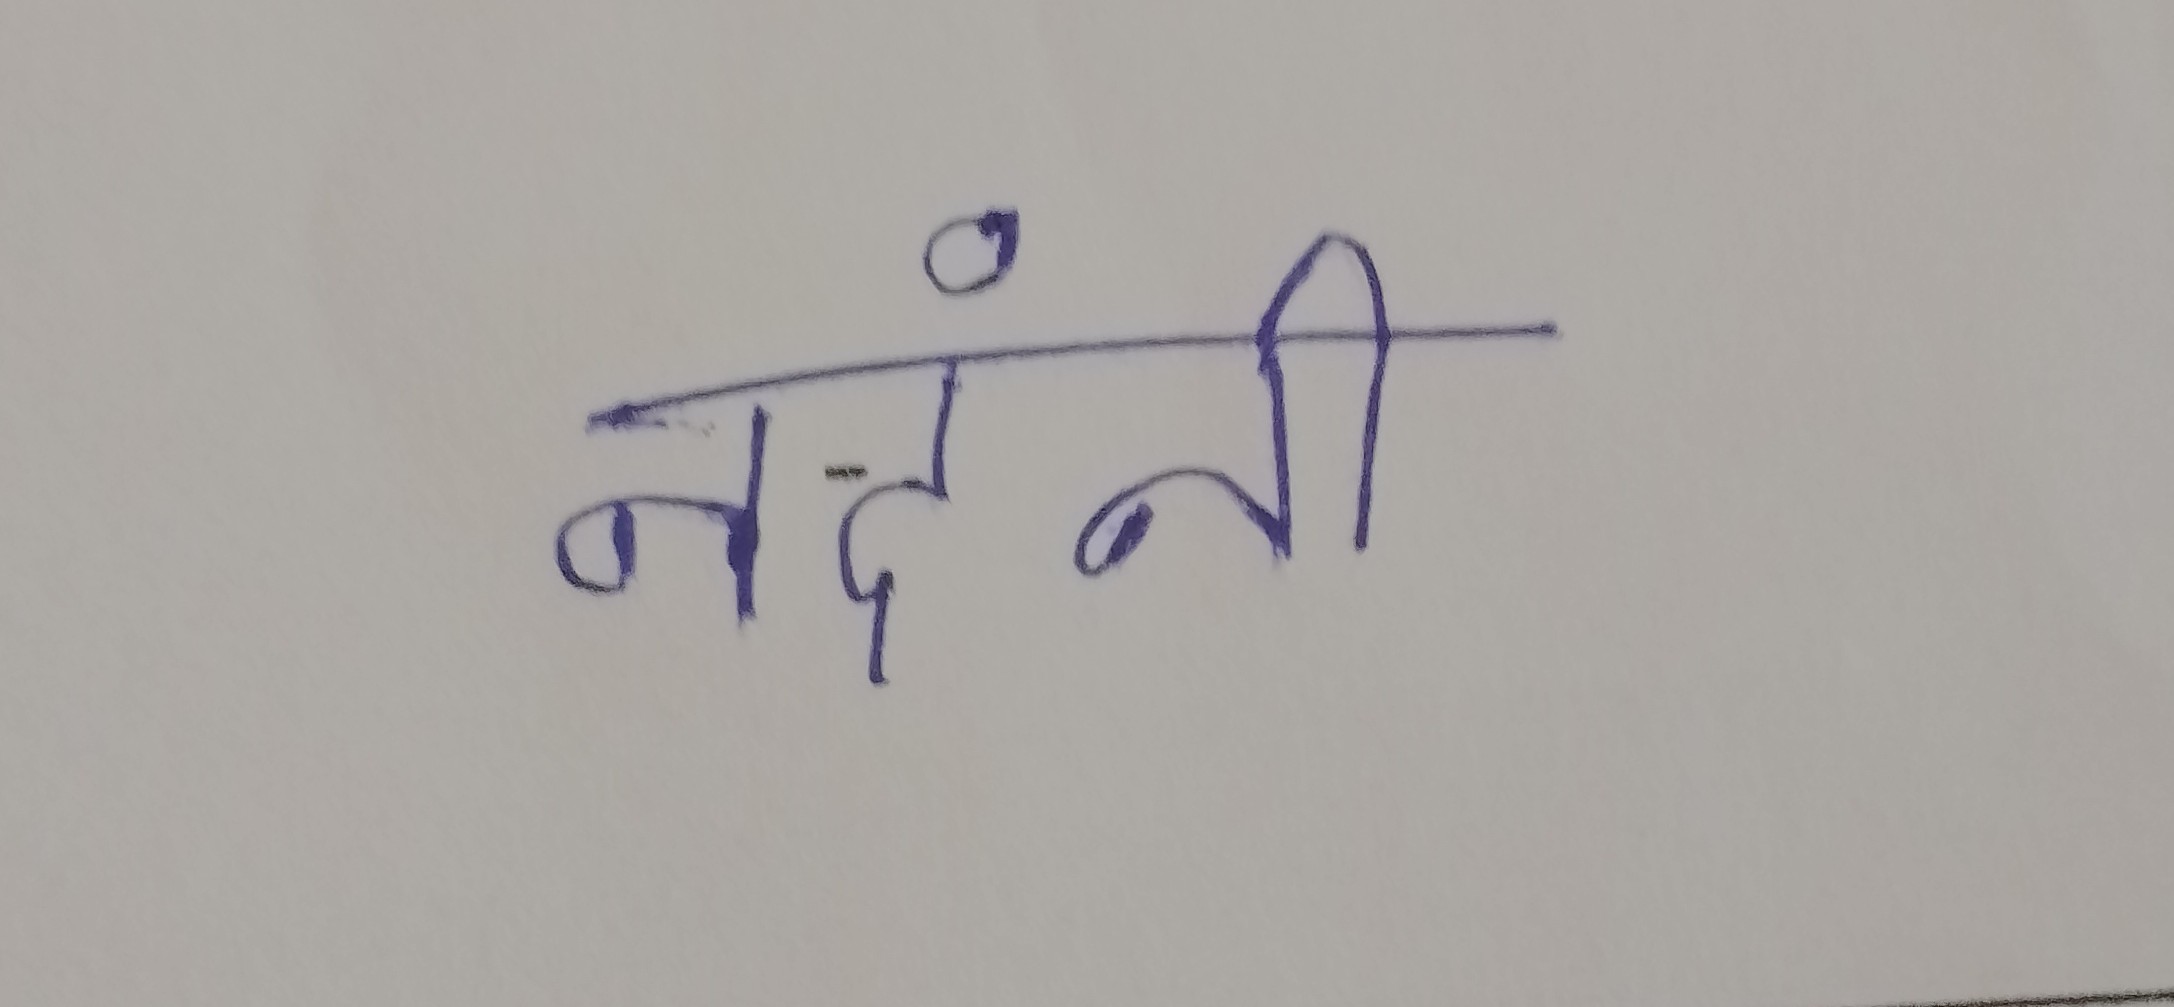 नदंनी